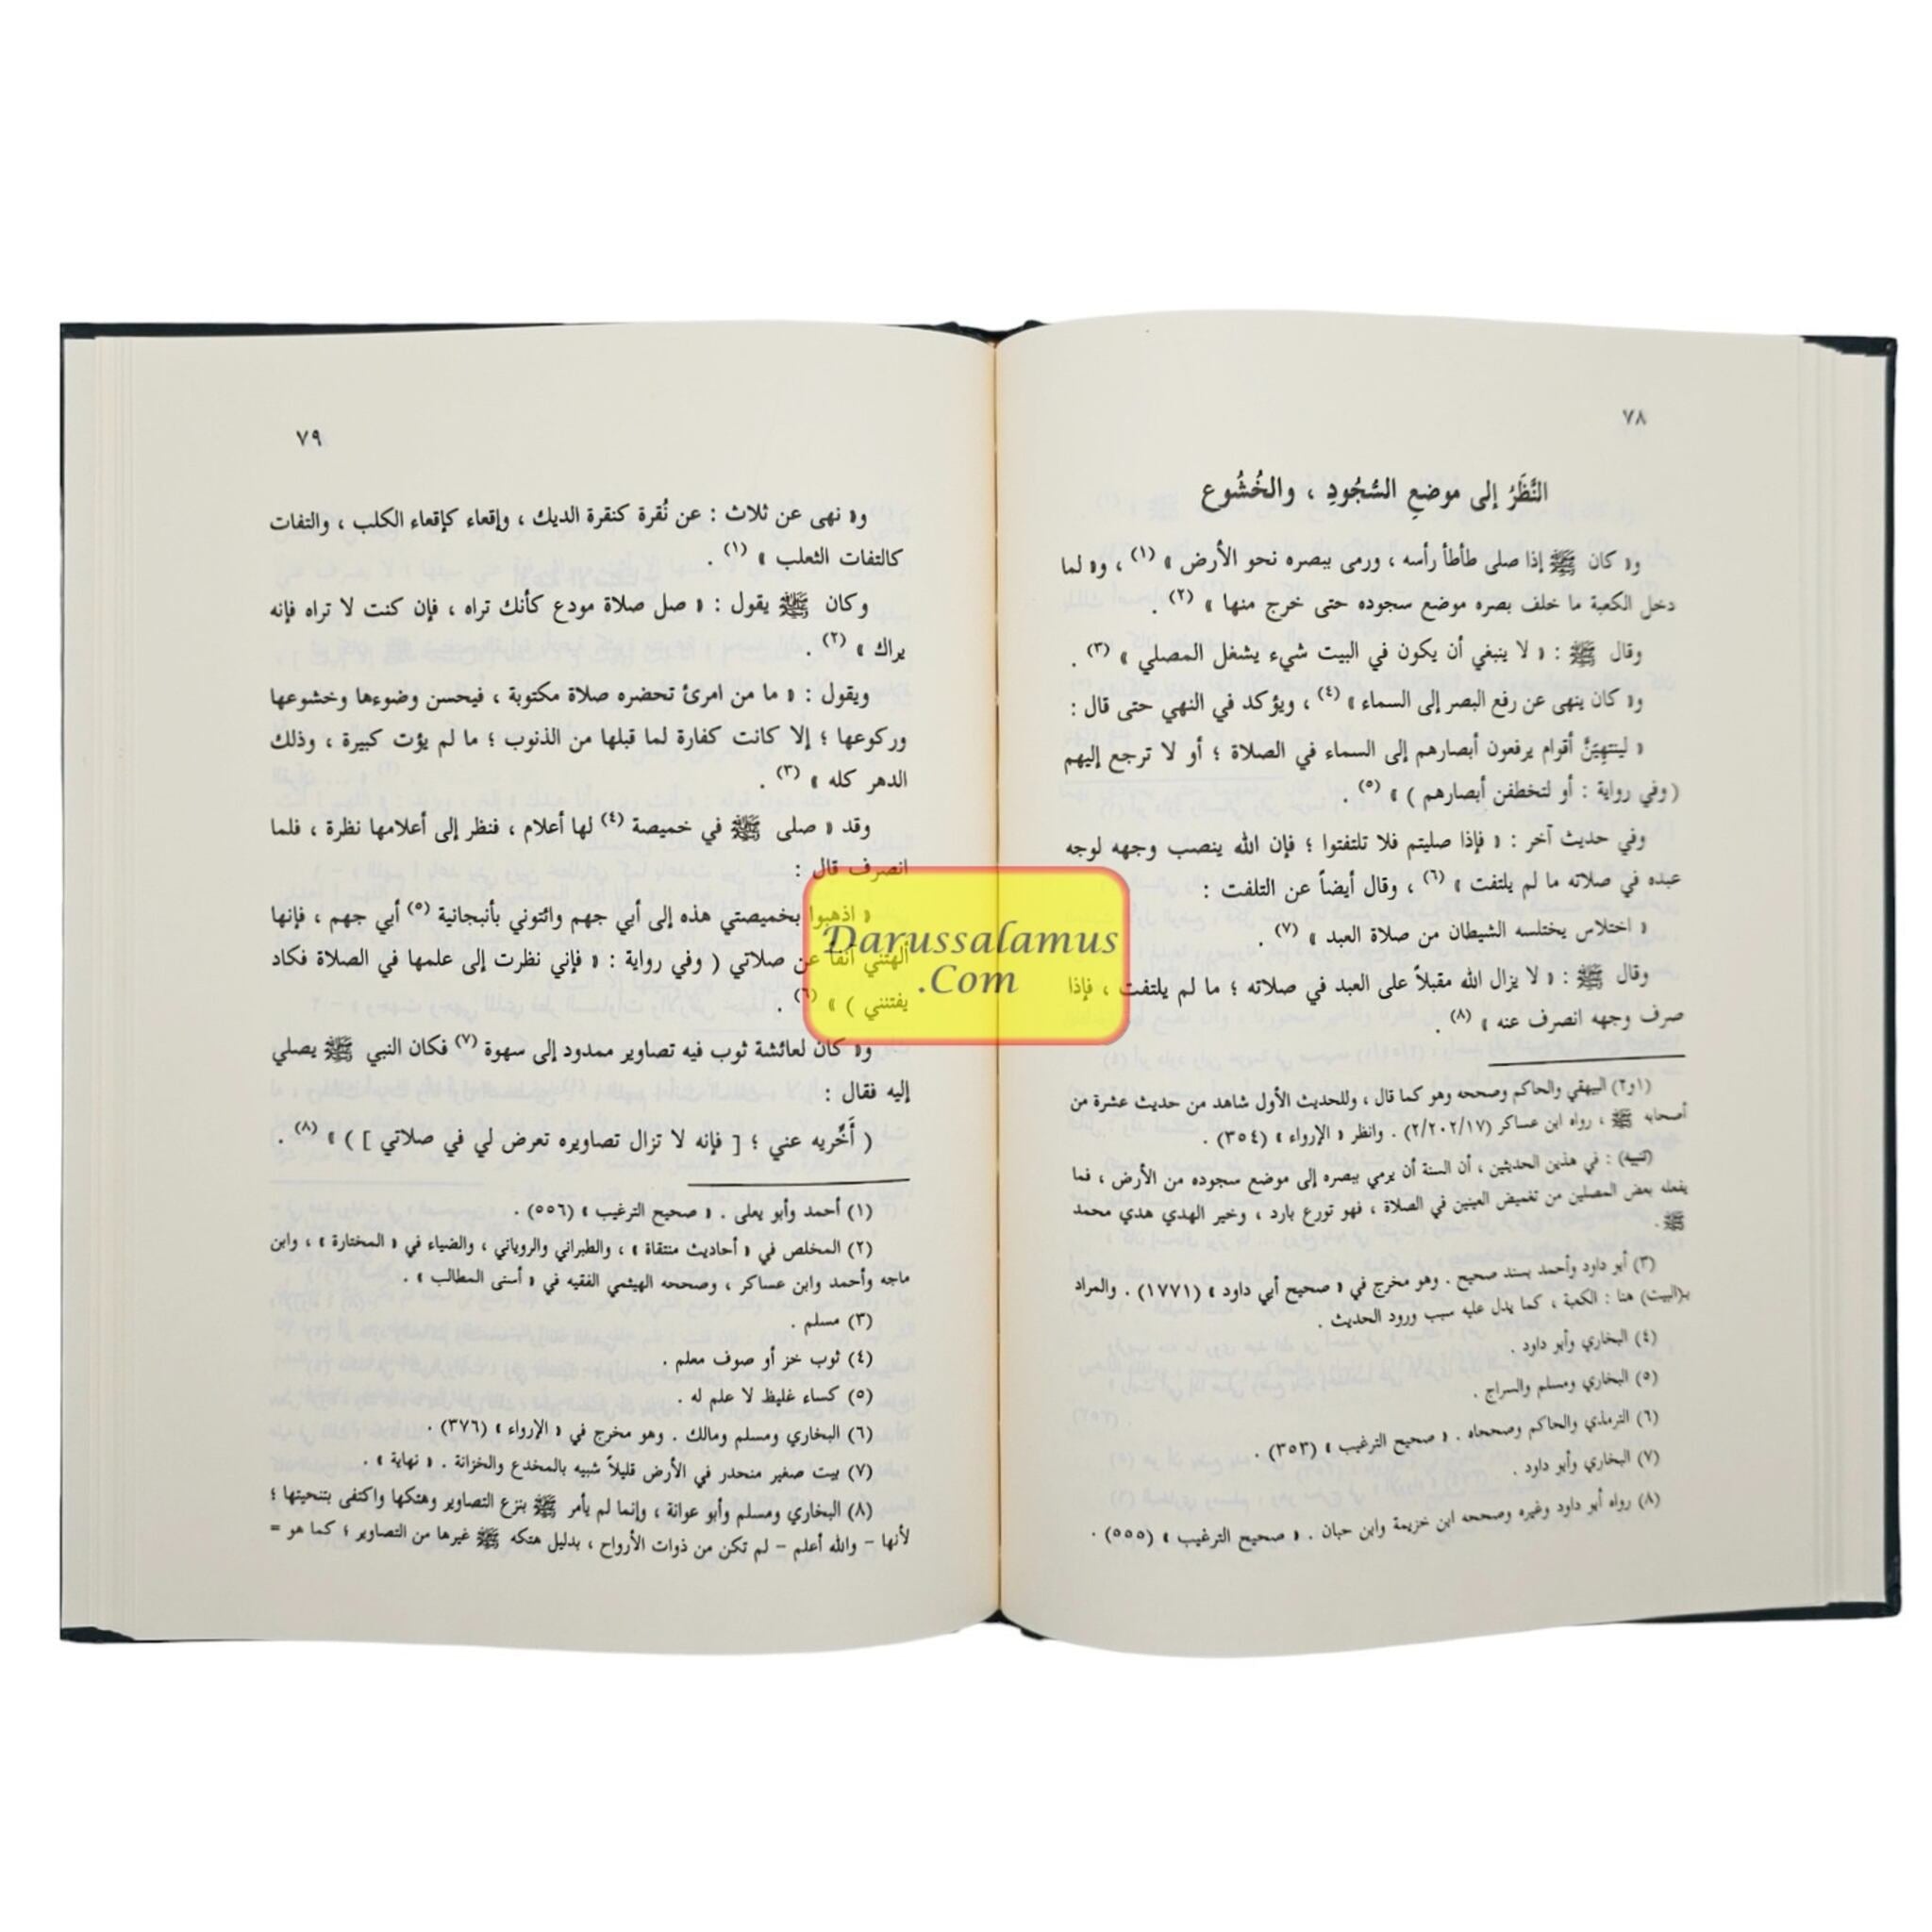 ٧٨
النَّظَرُ إلى موضعِ السُّجُودِ ، والخُشُوع
و« كان ﷺ إذا صلى طأطأ رأسه ، ورمى ببصره نحو الأرض » (١) ، و« لما
دخل الكعبة ما خلف بصره موضع سجوده حتى خرج منها » (٢) .
وقال ﷺ : « لا ينبغي أن يكون في البيت شيء يشغل المصلي » (٣) .
و« كان ينهى عن رفع البصر إلى السماء » (٤) ، ويؤكد في النهي حتى قال :
« لينتهِيَنَّ أقوام يرفعون أبصارهم إلى السماء في الصلاة ؛ أو لا ترجع إليهم
( وفي رواية : أو لتخطفن أبصارهم ) » (٥) .
وفي حديث آخر : « فإذا صليتم فلا تلتفتوا ؛ فإن الله ينصب وجهه لوجه
عبده في صلاته ما لم يلتفت » (٦) ، وقال أيضاً عن التلفت :
« اختلاس يختلسه الشيطان من صلاة العبد » (٧) .
وقال ﷺ : « لا يزال الله مقبلاً على العبد في صلاته ؛ ما لم يلتفت ، فإذا
صرف وجهه انصرف عنه » (٨) .
(١و٢) البيهقي والحاكم وصححه وهو كما قال ، وللحديث الأول شاهد من حديث عشرة من
أصحابه ﷺ ، رواه ابن عساكر (٢/٢٠٢/١٧) . وانظر « الإرواء » (٣٥٤) .
(تنبيه) : في هذين الحديثين ، أن السنة أن يرمي ببصره إلى موضع سجوده من الأرض ، فما
يفعله بعض المصلين من تغميض العينين في الصلاة ، فهو تورع بارد ، وخير الهدي هدي محمد
ﷺ .
(٣) أبو داود وأحمد بسند صحيح . وهو مخرج في « صحيح أبي داود » (١٧٧١) . والمراد
بـ(البيت) هنا : الكعبة ، كما يدل عليه سبب ورود الحديث .
(٤) البخاري وأبو داود .
(٥) البخاري ومسلم والسراج .
(٦) الترمذي والحاكم وصححاه . « صحيح الترغيب » (٣٥٣) .
(٧) البخاري وأبو داود .
(٨) رواه أبو داود وغيره وصححه ابن خزيمة وابن حبان . « صحيح الترغيب » (٥٥٥) .
٧٩
و« نهى عن ثلاث : عن نُقرة كنقرة الديك ، وإقعاء كإقعاء الكلب ، والتفات
كالتفات الثعلب » (١) .
وكان ﷺ يقول : « صل صلاة مودع كأنك تراه ، فإن كنت لا تراه فإنه
يراك » (٢) .
ويقول : « ما من امرئ تحضره صلاة مكتوبة ، فيحسن وضوءها وخشوعها
وركوعها ؛ إلا كانت كفارة لما قبلها من الذنوب ؛ ما لم يؤت كبيرة ، وذلك
الدهر كله » (٣) .
وقد « صلى ﷺ في خميصة (٤) لها أعلام ، فنظر إلى أعلامها نظرة ، فلما
انصرف قال :
« اذهبوا بخميصتي هذه إلى أبي جهم وائتوني بأنبجانية (٥) أبي جهم ، فإنها
ألهتني آنفاً عن صلاتي ( وفي رواية : « فإني نظرت إلى علمها في الصلاة فكاد
يفتنني ) » (٦) .
و« كان لعائشة ثوب فيه تصاوير ممدود إلى سهوة (٧) فكان النبي ﷺ يصلي
إليه فقال :
( أَخِّريه عني ؛ [ فإنه لا تزال تصاويره تعرض لي في صلاتي ] ) » (٨) .
(١) أحمد وأبو يعلى . « صحيح الترغيب » (٥٥٦) .
(٢) المخلص في « أحاديث منتقاة » ، والطبراني والروياني ، والضياء في « المختارة » ، وابن
ماجه وأحمد وابن عساكر ، وصححه الهيثمي الفقيه في « أسنى المطالب » .
(٣) مسلم .
(٤) ثوب خز أو صوف معلم .
(٥) كساء غليظ لا علم له .
(٦) البخاري ومسلم ومالك . وهو مخرج في « الإرواء » (٣٧٦) .
(٧) بيت صغير منحدر في الأرض قليلاً شبيه بالمخدع والخزانة . « نهاية » .
(٨) البخاري ومسلم وأبو عوانة ، وإنما لم يأمر ﷺ بنزع التصاوير وهتكها واكتفى بتنحيتها ؛
لأنها – والله أعلم – لم تكن من ذوات الأرواح ، بدليل هتكه ﷺ غيرها من التصاوير ؛ كما هو =
Darussalamus
.Com